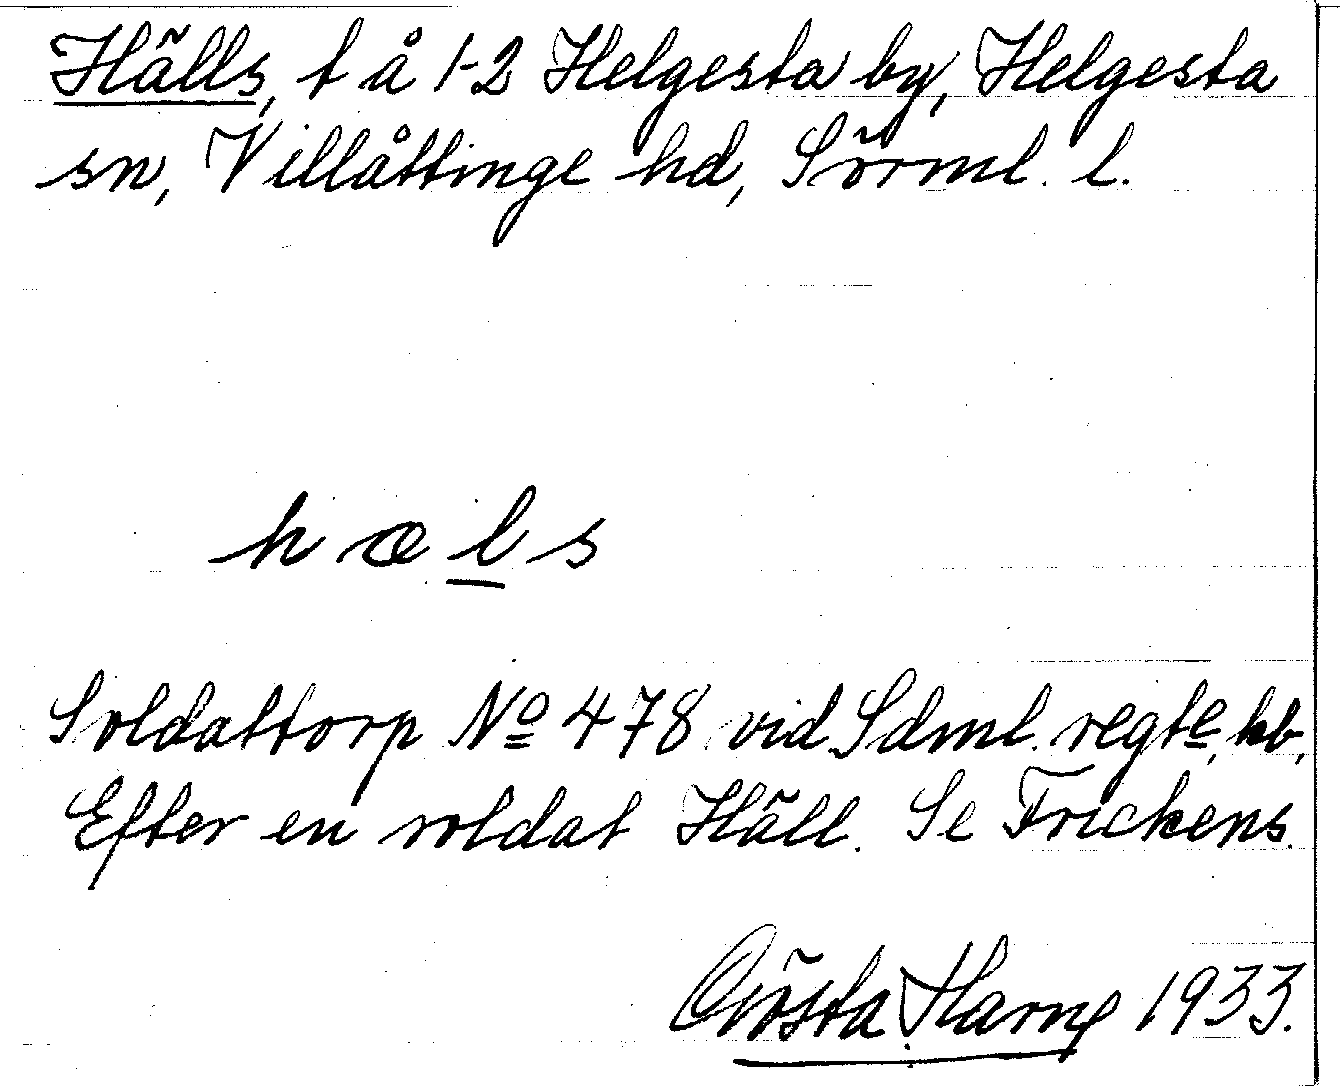 Hälls, t å 1-2 Helgesta by, Helgesta
sn, Villåttinge hd, Sörml. l.
hæl̲s
Soldattorp Nº 478 vid Sdml. regte, kb,
Efter en soldat Häll. Se Frickens.
Gösta Harne 1933.